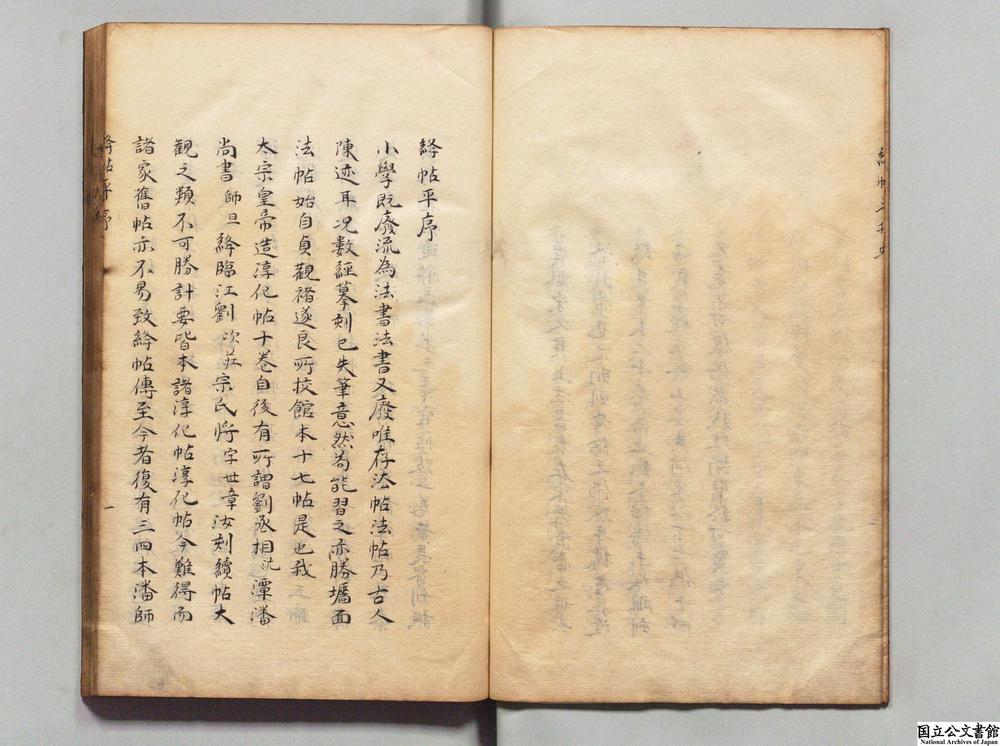 絳帖平序
小學既廢流為法書法書又廢唯存法帖法帖乃古人
陳迹耳况數經摹刻已失筆意然苟能習之亦勝墻面
法帖始自貞觀褚遂良所挍館本十七帖是也我
太宗皇帝造淳化帖十卷自後有所謂劉丞相沆潭潘
尚書師旦絳臨江劉次莊宗氏將字世章汝刻續帖大
觀之類不可勝計要皆本諸淳化帖淳化帖今難得而
諸家舊帖亦不易致絳帖傳至今者復有三四本潘師
絳帖平序
一
国立公文書館
National Archives of Japan